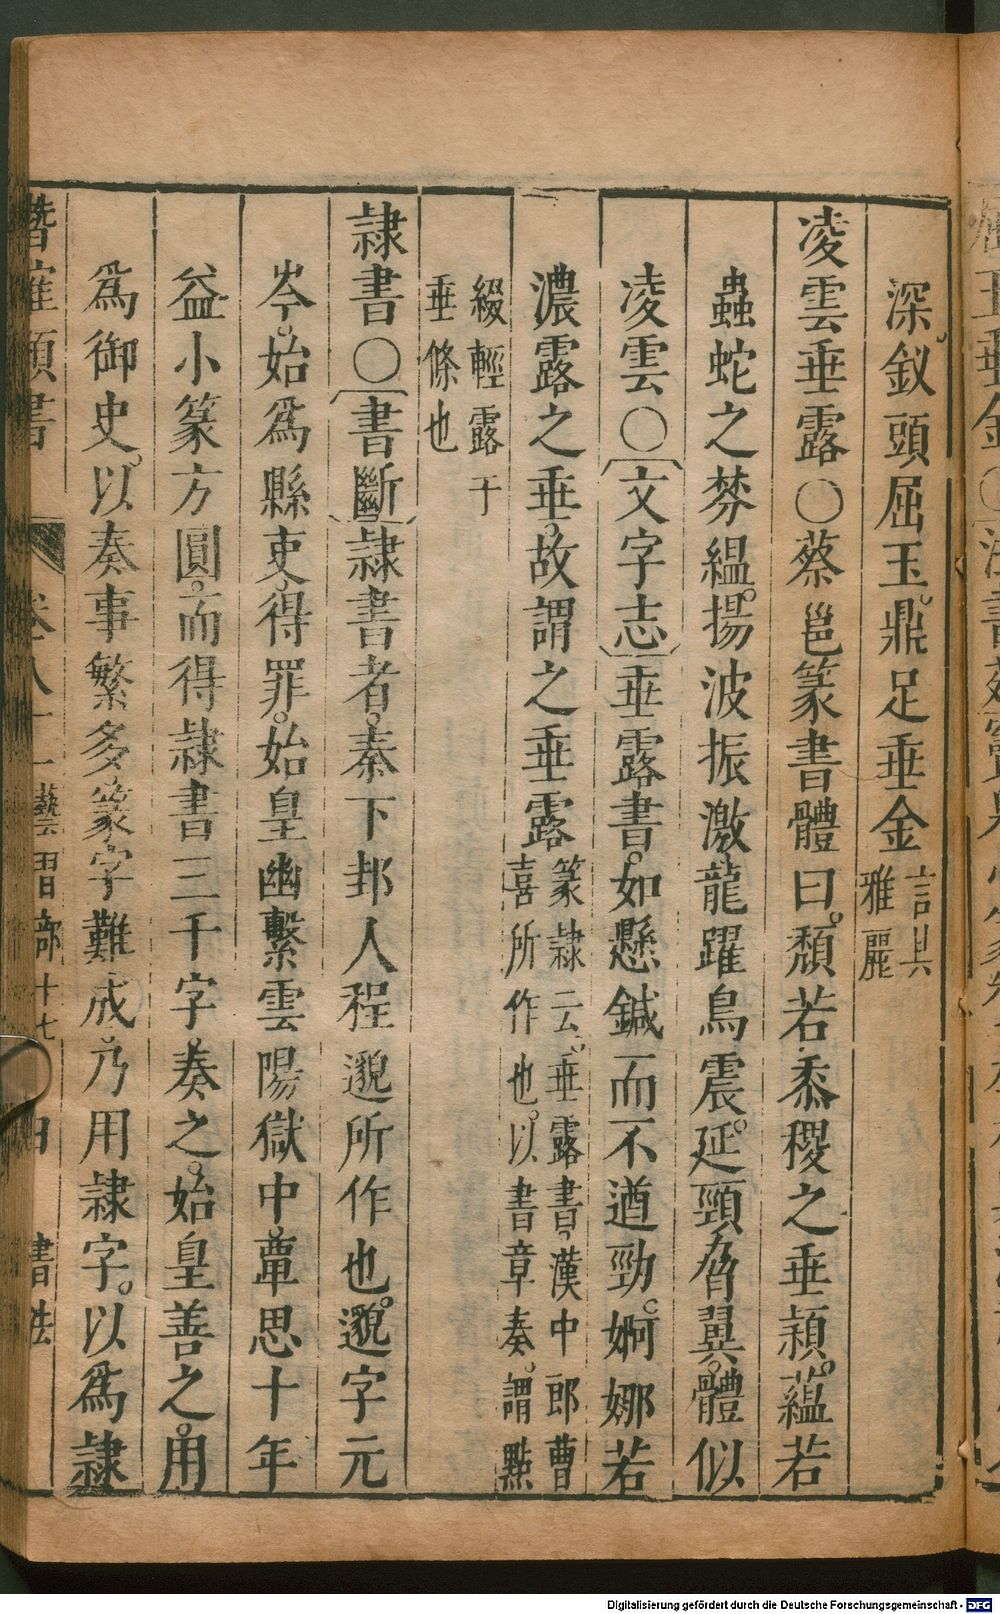 深。釵頭屈玉。鼎足垂金言其雅麗
凌雲垂露〇蔡邕篆書體曰。頹若黍稷之垂穎。蘊若
蟲蛇之棼緼。揚波振激龍躍鳥震。延頸脅翼。體似
凌雲〇〔文字志〕垂露書。如懸鍼而不遒勁。婀娜若
濃露之垂。故謂之垂露篆隸云。垂露書。漢中郎曹喜所作也。以書章奏。謂點
綴輕露于垂條也
隸書〇〔書斷〕隸書者。秦下邽人程邈所作也。邈字元
岑。始爲縣吏。得罪。始皇幽繫雲陽獄中。覃思十年
益小篆方圓。而得隸書三千字。奏之。始皇善之。用
爲御史。以奏事繁多。篆字難成。乃用隸字。以爲隸
潛確類書 卷八十二藝習部十七 書法
Digitalisierung gefördert durch die Deutsche Forschungsgemeinschaft - DFG